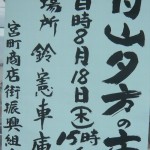 山夕方の
日時8月18日(木)15時
場所 鈴憲車庫
宮町商店街振興組